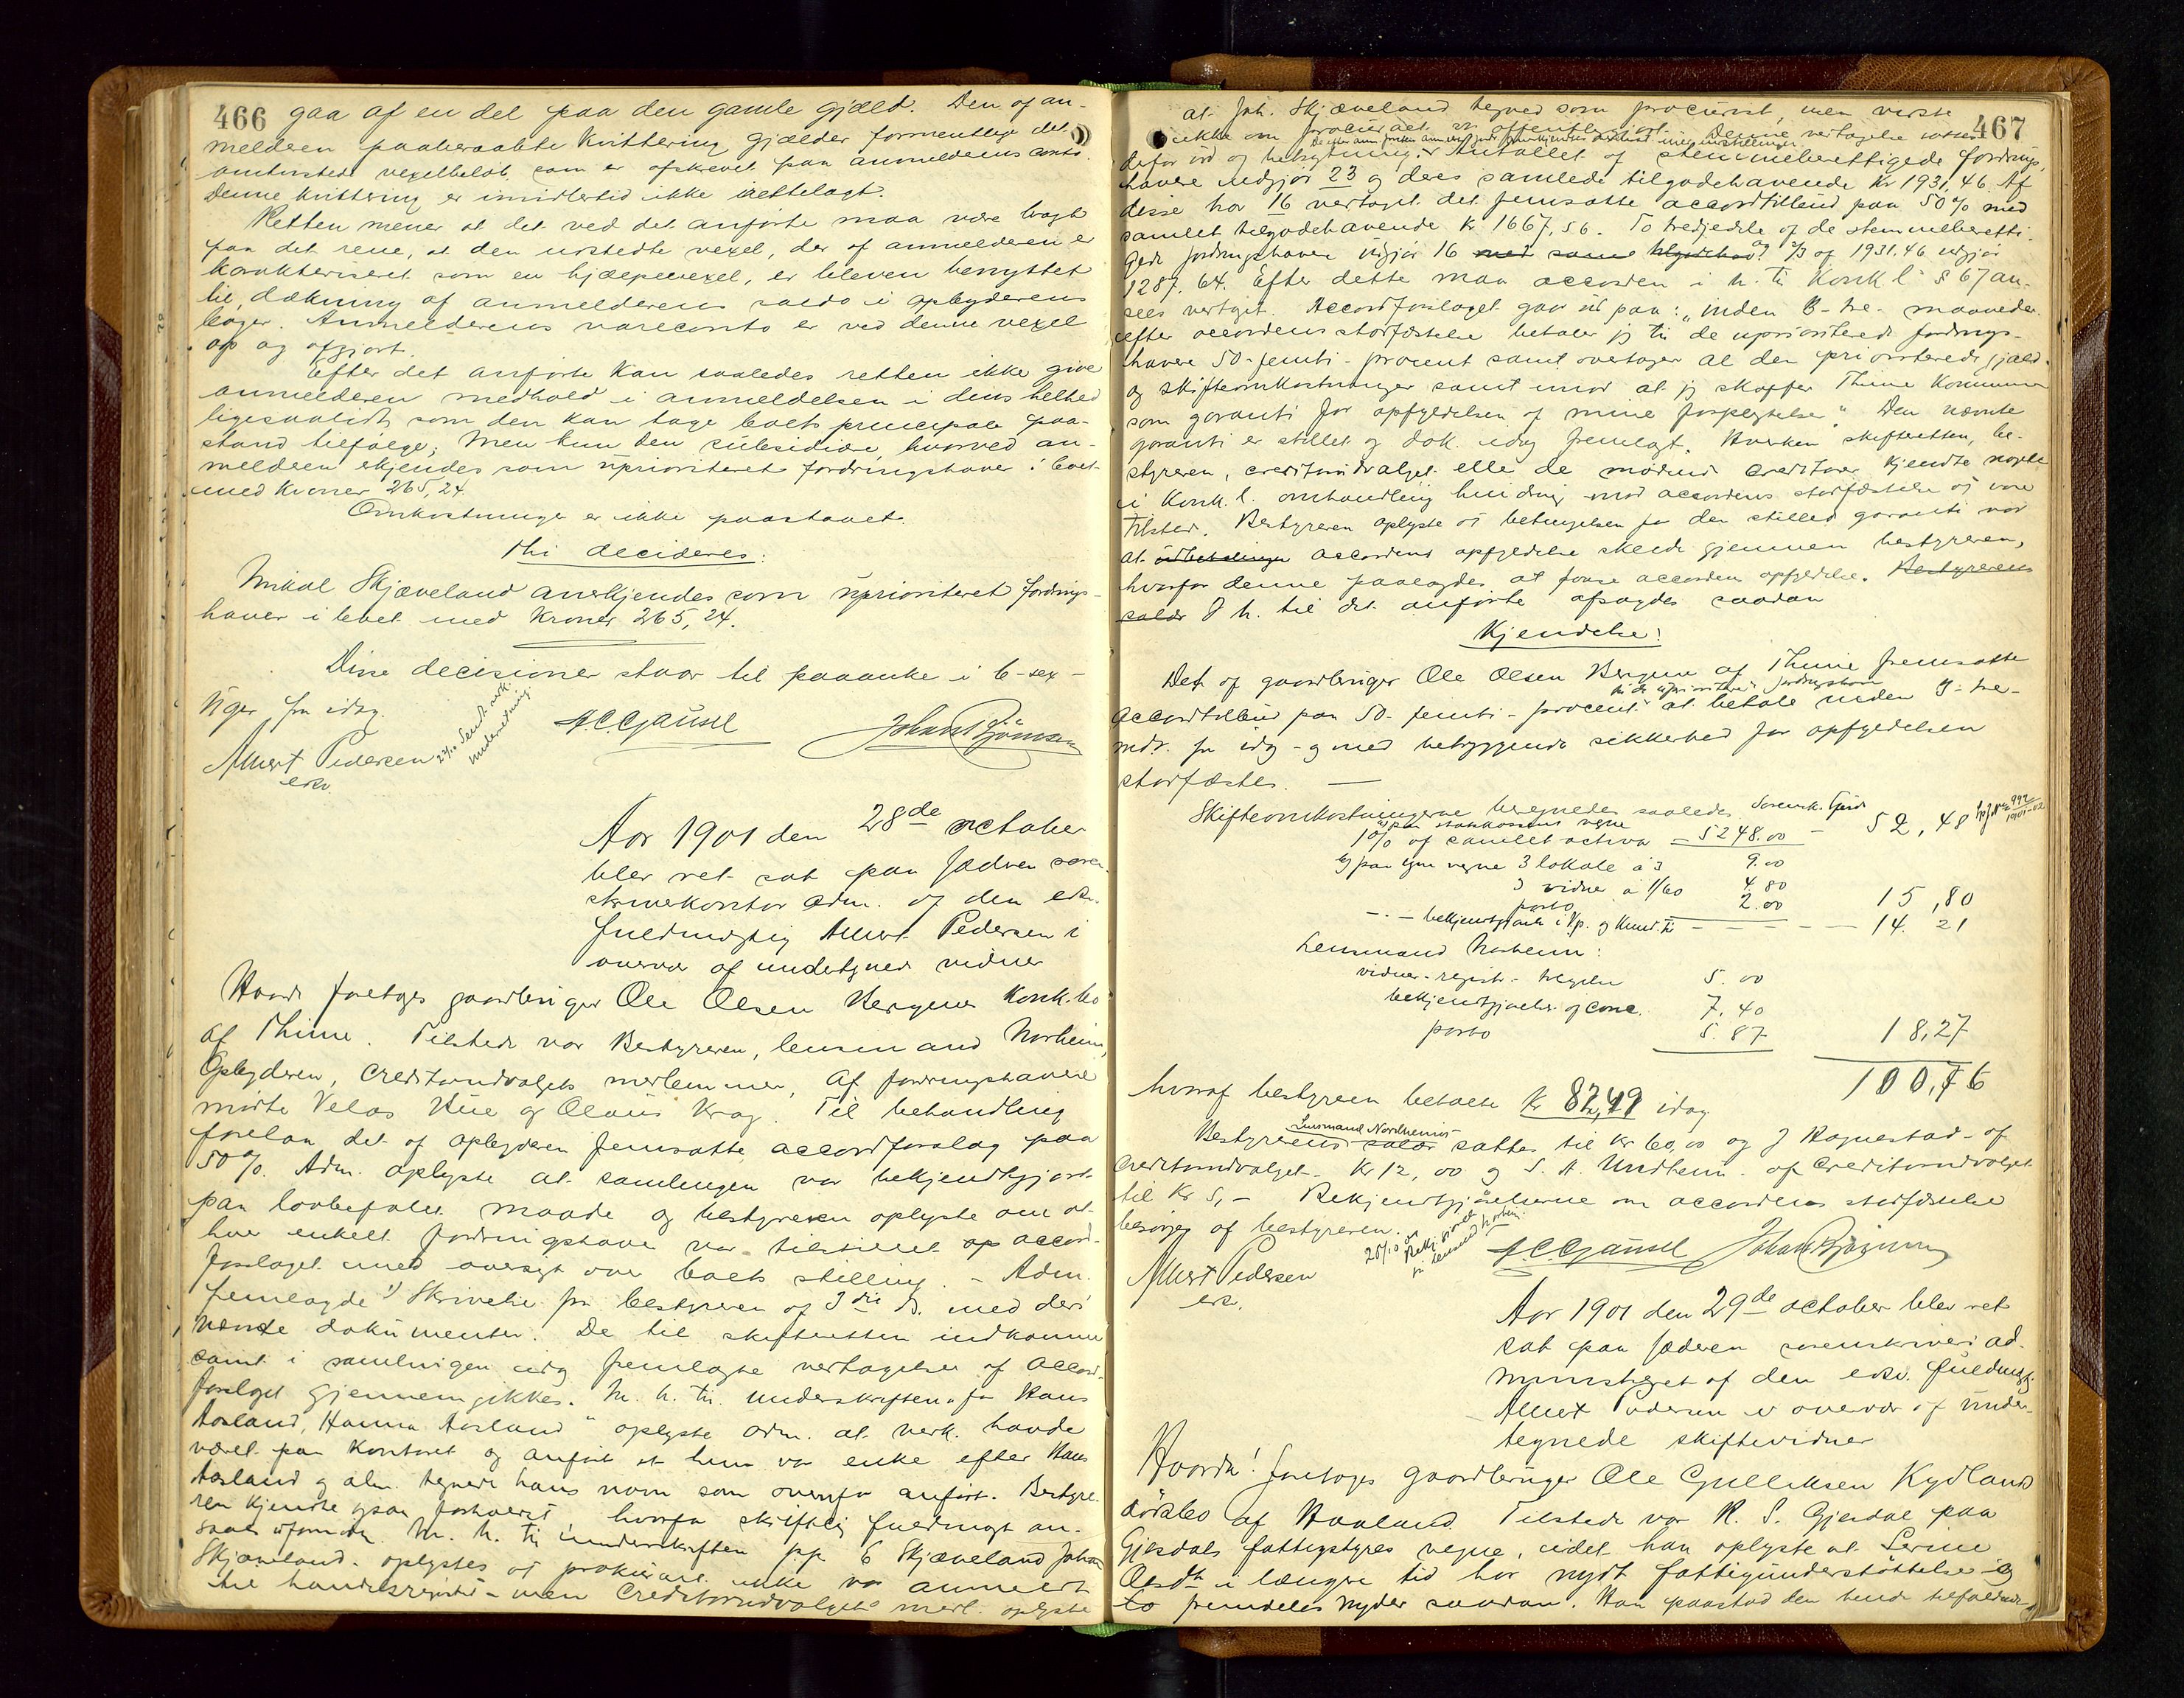 466
gaa af en del paa den gamle gjæld. Den af an-
melderen paaberaabte kvittering gjælder formentlig det
omtvistede vexelbeløb som er afskrevet paa anmelderens conto.
Denne kvittering er imidlertid ikke irettelagt.
Retten mener at det ved det anførte maa være bragt
paa det rene, at den udstedte vexel, der af anmelderen er
karakteriseret som en hjælpevexel, er bleven benyttet
til dækning af anmelderens saldo i opbyderens
bøger. Anmelderens vareconto er ved denne vexel
op og afgjort.
Efter det anførte kan saaledes retten ikke give
anmelderen medhold i anmeldelsen i dens helhed
ligesaalidt som den kan tage boets principale paa-
stand tilfølge; men kun den subsidiære, hvorved an-
melderen erkjendes som uprioriteret fordringshaver i boet
med kroner 265,24.
Omkostninger er ikke paastaaet.
Thi decideres:
Mikal Skjæveland anerkjendes som uprioriteret fordrings-
haver i boet med kroner 265,24.
Disse decisioner staar til paaanke i 6-sex-
uger fra idag.
Albert Pedersen
edsv.
23/10 Sendt udt. underretning
A.C. Gausel
Johan Bjørnsen
Aar 1901 den 28de october
blev ret sat paa Jæderen soren-
skriverkontor adm. af den edsv.
fuldmægtig Albert Pedersen i
overvær af undertegnede vidner
Hvorda foretoges gaardbruger Ole Olsen Bergene konk.bo
af Thime. Tilstede var Bestyreren, lensmand Norheim,
Opbyderen, Creditorudvalgets medlemmer, Af fordringshavere
mødte Velas Hue og Olaus Krag. Til behandling
forelaa det af opbyderen fremsatte accordforslag paa
50%. Adm. oplyste at samlingen var bekjendtgjort
paa lovbefalet maade og bestyreren oplyste om at
hver enkelt fordringshaver var tilstillet accord-
forslaget med oversigt over boets stilling. - Adm.
fremlagde 1) Skrivelse fra bestyreren af 3die ds. med deri
nævnte dokumenter. De til skifteretten indkomne
samt i samlingen idag fremlagte vedtagelser af accord-
forslaget gjennemgikkes. M. h. til underskriften "for Hans
Aasland, Hanna Aasland" oplyste adm. at vedk. havde
været paa kontoret og anført at hun var enke efter Hans
Aasland og alm. tegnede hans navn som ovenfor anført. Bestyre-
ren kjendte ogsaa forholdet, hvorfor skriftlig fuldmagt an-
saaes ufornøden. M. h. til underskriften pp. E Skjæveland Johan
Skjæveland oplystes at prokuraet ikke var anmeldt
til handelsregistret - men Creditorudvalgets medl. oplyste
467
at Joh. Skjæveland tegned som procurist, men vidste
ikke om procuraet er offentliggjort. Denne vedtagelse
defor ud og betydning. Antallet af stemmeberettigede fordrings-
havere udgjør 23 og deres samlede tilgodehavende kr 1931,46. Af
disse har 16 vedtaget det fremsatte accordtilbud paa 50% med
samlet tilgodehavende kr 1667,56. To tredjedele af de stemmeberetti-
gede fordringshavere udgjør 16 og 2/3 af 1931.46 udgjør
1287.64. Efter dette maa accorden i h. til Konk.l. § 67 an-
sees vedtaget. Accordforslaget gaar ud paa: "inden 3-tre- maaneder
efter accordens stadfæstelse betaler jeg til de uprioriterede fordrings-
havere 50-femti-procent samt overtager al den prioriterede gjæld
og skifteomkostninger samt imod at jeg skaffer Thime Kommune
som garanti for opfyldelsen af mine forpligtelser" Den nævnte
garanti er stillet og dok. idag fremlagt. Hverken skifteretten, be-
styreren, creditorudvalget eller de mødende creditorer kjendte nogle
i Konk.l. omhandlede hindring mod accordens stadfæstelse at være
tilstede. Bestyreren oplyste at betingelsen for den stillede garanti var
at accordens opfyldelse skede gjennem bestyreren,
hvorfor denne paalagdes at forse accordens opfyldelse. Bestyrerens
salær I h. til det anførte afsagdes saadan
Kjendelse:
Det af gaardbruger Ole Olsen Bergene af Thime fremsatte
til de uprioriterede fordringshavere
accordtilbud paa 50-femti-procent at betale inden 3-tre-
mdr. fra idag - og med betryggende sikkerhed for opfyldelsen
stadfæstes. —
Skifteomkostningerne beregnedes saaledes Sorensk. Gjerdr.
a) paa statskassens vegne
1% af samlet activa = 5248.00 - 52,48
b) paa egne vegne 3 lokale à 3 9.00
3 vidner à 1/60 4.80
porto 2.00 15,80
-.- bekjendtgjørelse i Np. og Kund.tid. - - - - 14.21
Lensmand Norheim:
vidner-registr- 5.00
bekjendtgjørelser og conv. 7,40
porto 5.87 18,27
100,76
hvoraf bestyreren betalte kr 82,49 idag
Lensmand Nordheims
Bestyrerens salær sattes til kr 60,00 og J Hognestad - af
Creditorudvalget - kr 12,00 og S. A. Undheim - af Creditorudvalget
til kr 5,- Bekjendtgjørelserne om accordens stadfæstelse
besørges af bestyreren.
Albert Pedersen
edsv.
A.C. Gausel Johan Bjørnsen
Aar 1901 den 29de october blev ret
sat paa Jæderen sorenskriveri ad-
ministreret af den edsv. fuldmægtig
Albert Pedersen i overvær af under-
tegnede skiftevidner
Hvorda! foretoges gaardbruger Ole Gulliksen Kydland
dødsbo af Haaland Tilstede var R. S. Gjesdal paa
Gjesdals fattigstyres vegne, idet han oplyste at Serine
Olsdt i længre tid har nydt fattigunderstøttelse og
fremdeles nyder saadan. Han paastod den hende tilfaldende